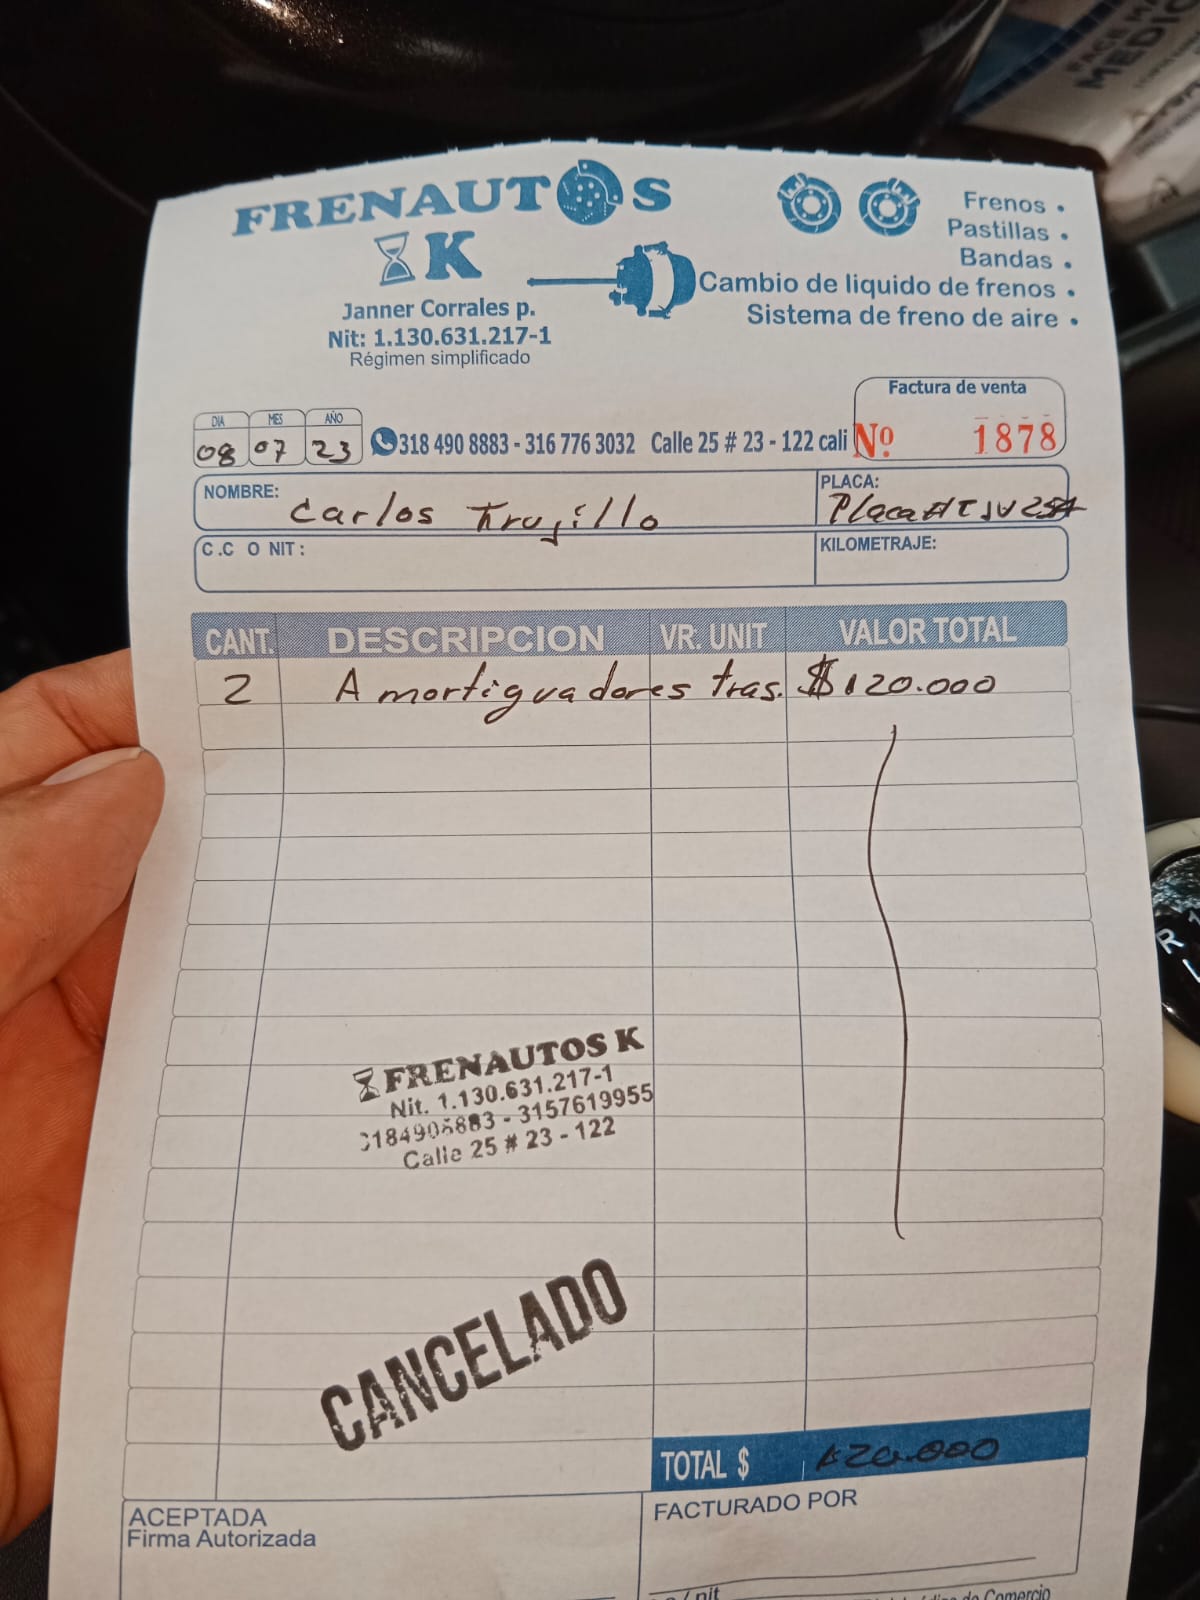 FACE MA
MEDIC
FRENAUTOS
K
Janner Corrales p.
Nit: 1.130.631.217-1
Régimen simplificado
Frenos •
Pastillas •
Bandas •
Cambio de liquido de frenos •
Sistema de freno de aire •
Factura de venta
Nº 1878
DIA MES AÑO
08 07 23
318 490 8883 - 316 776 3032 Calle 25 # 23 - 122 cali
NOMBRE: Carlos Trujillo
PLACA: Placa#
C.C O NIT:
KILOMETRAJE:
CANT. DESCRIPCION VR. UNIT VALOR TOTAL
2 Amortiguadores tras. $120.000
FRENAUTOS K
Nit. 1.130.631.217-1
3184908883 - 3157619955
Calle 25 # 23 - 122
CANCELADO
TOTAL $ 120.000
ACEPTADA
Firma Autorizada
FACTURADO POR
/ nit
de Comercio
R 1